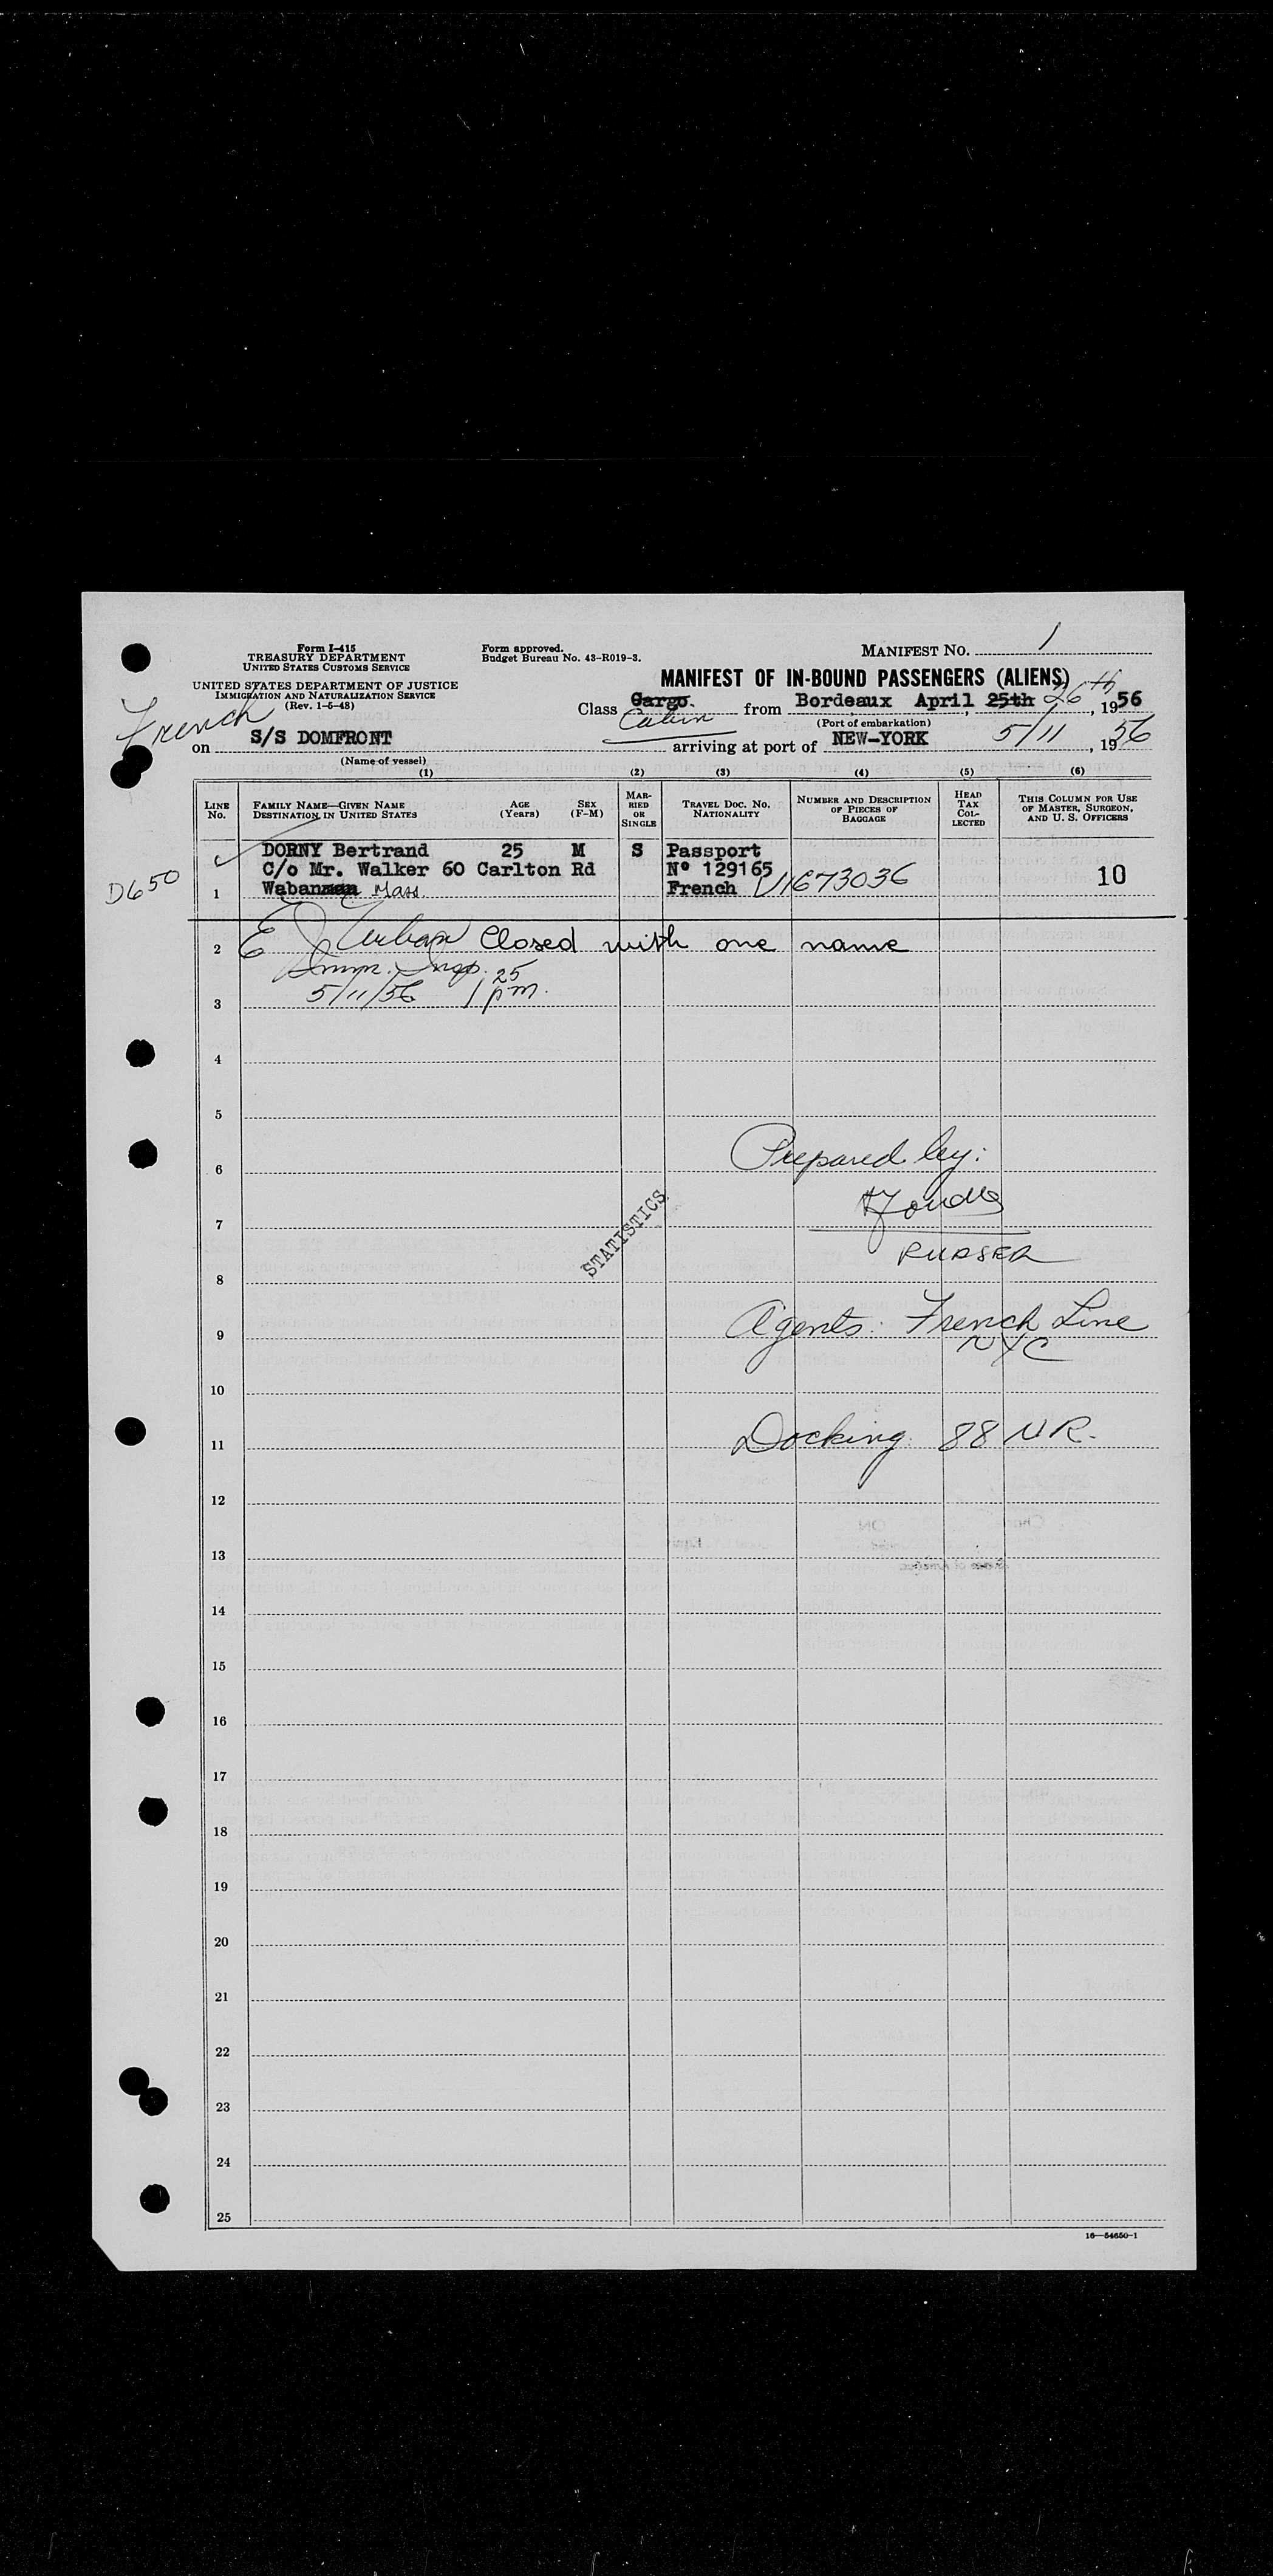 Form I-415
TREASURY DEPARTMENT
UNITED STATES CUSTOMS SERVICE
Form approved.
Budget Bureau No. 43-R019-3.
MANIFEST NO. 1
UNITED STATES DEPARTMENT OF JUSTICE
IMMIGRATION AND NATURALIZATION SERVICE
(Rev. 1-5-48)
MANIFEST OF IN-BOUND PASSENGERS (ALIENS)
French
Class Cargo. Cabin from Bordeaux April 25th 26th, 1956
(Port of embarkation)
on S/S DOMFRONT arriving at port of NEW-YORK 5/11, 1956
(Name of vessel)
(1) (2) (3) (4) (5) (6)
LINE NO.
FAMILY NAME—GIVEN NAME
DESTINATION IN UNITED STATES
AGE (Years)
SEX (F-M)
MARRIED OR SINGLE
TRAVEL DOC. NO.
NATIONALITY
NUMBER AND DESCRIPTION OF PIECES OF BAGGAGE
HEAD TAX COLLECTED
THIS COLUMN FOR USE OF MASTER, SURGEON, AND U. S. OFFICERS
DORNY Bertrand 25 M S Passport
C/o Mr. Walker 60 Carlton Rd Nº 129165
D650 1 Waban Mass. French V11673036 10
2 E J Urban Closed with one name
Imm. Insp.
3 5/11/56 1 25 pm.
4
5
6 Prepared by:
7
STATISTICS
PURSER
8
9 Agents: French Line
NYC
10
11 Docking 88 NR.
12
13
14
15
16
17
18
19
20
21
22
23
24
25
16—54650-1